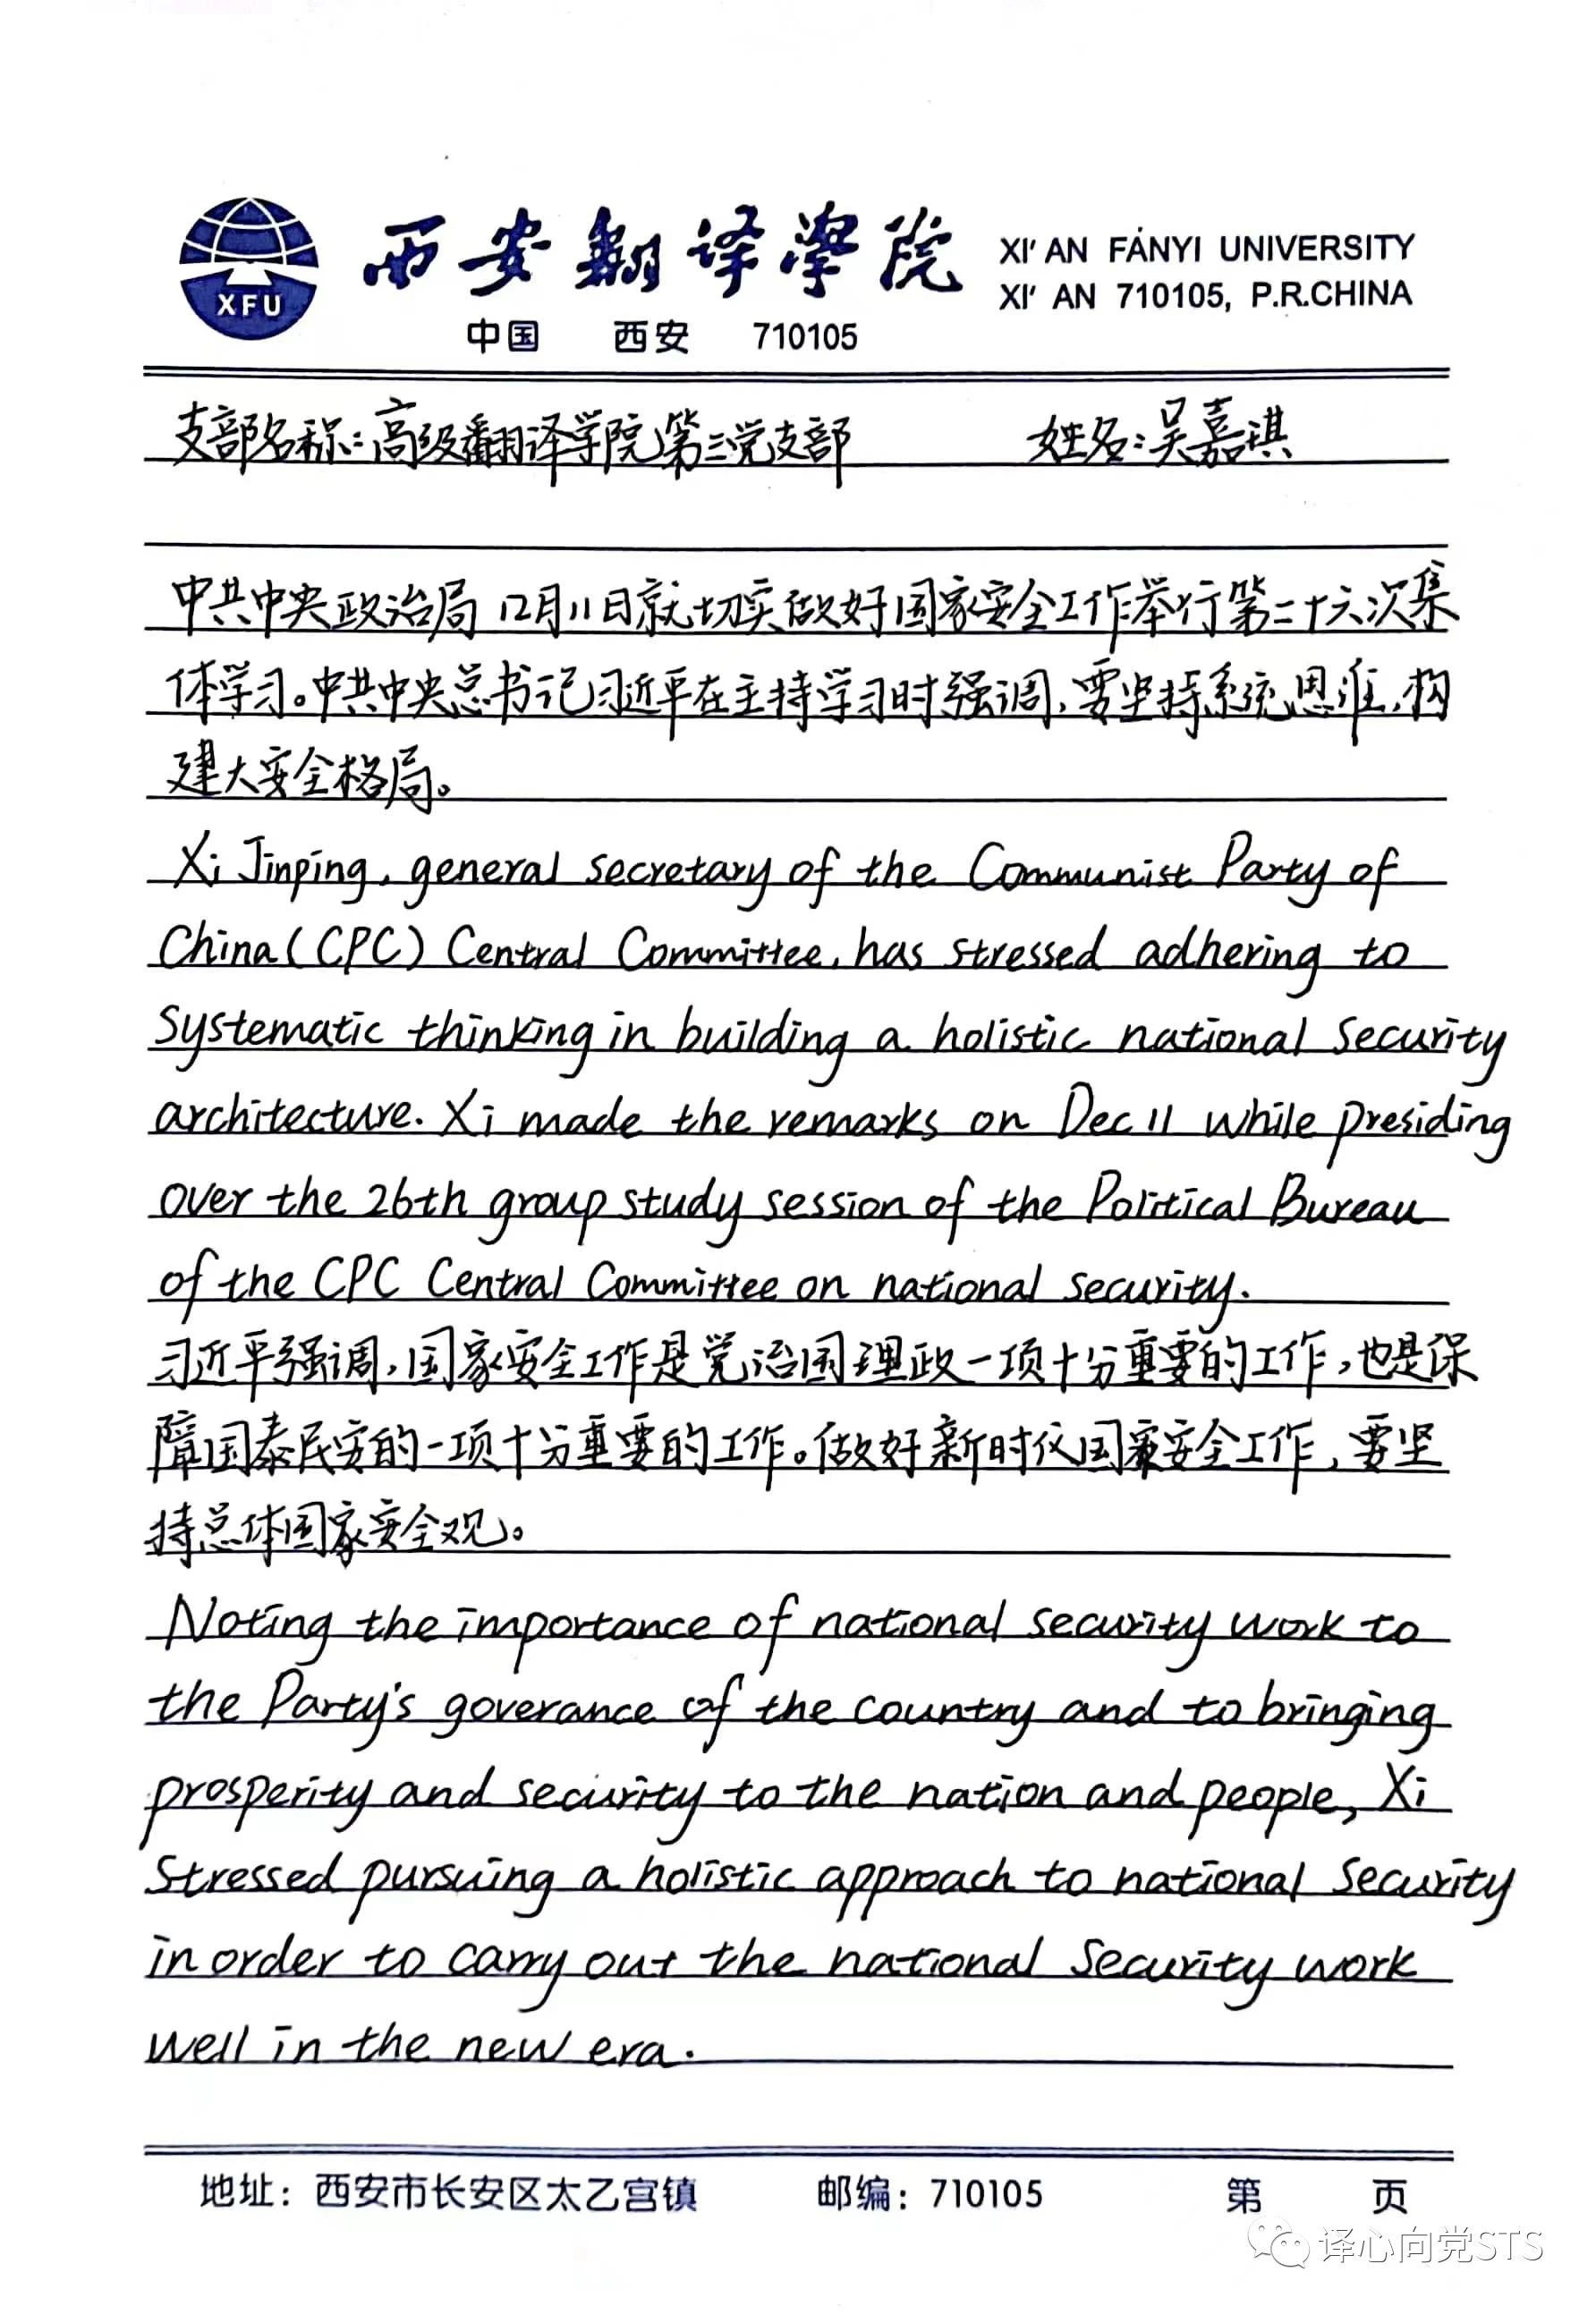 西安翻译学院
XI' AN FANYI UNIVERSITY
XI' AN 710105, P.R.CHINA
XFU
中国 西安 710105
支部名称：高级翻译学院第三党支部 姓名：吴嘉琪
中共中央政治局12月11日就切实做好国家安全工作举行第二十六次集
体学习。中共中央总书记习近平在主持学习时强调，要坚持系统思维，构
建大安全格局。
Xi Jinping, general secretary of the Communist Party of
China (CPC) Central Committee, has stressed adhering to
systematic thinking in building a holistic national security
architecture. Xi made the remarks on Dec 11 while presiding
over the 26th group study session of the Political Bureau
of the CPC Central Committee on national security.
习近平强调，国家安全工作是党治国理政一项十分重要的工作，也是保
障国泰民安的一项十分重要的工作。做好新时代国家安全工作，要坚
持总体国家安全观。
Noting the importance of national security work to
the Party's goverance of the country and to bringing
prosperity and security to the nation and people, Xi
stressed pursuing a holistic approach to national security
in order to carry out the national security work
well in the new era.
地址：西安市长安区太乙宫镇 邮编：710105 第 页
译心向党STS